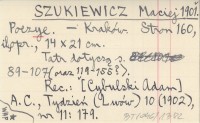 SZUKIEWICZ Maciej 1901.
Poezye. — Kraków. Stron 160,
ilpr., 14 x 21 cm.
Tatr dotyczą s.
89-107 (oraz 119-155?).
Rec.: [Cybulski Adam]
A.C., Tydzień (Lwów) 10 (1902),
nr 11: 179.